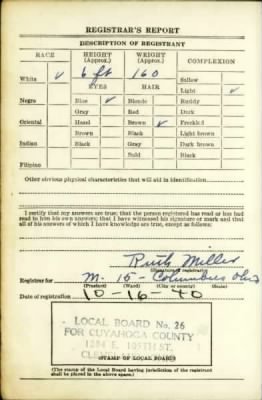 REGISTRAR'S REPORT
DESCRIPTION OF REGISTRANT
RACE HEIGHT (Approx.) WEIGHT (Approx.) COMPLEXION
White ✓ 6 ft 160 Sallow
EYES HAIR Light ✓
Negro Blue ✓ Blonde Ruddy
Gray Red Dark
Oriental Hazel Brown ✓ Freckled
Brown Black Light brown
Indian Black Gray Dark brown
Bald Black
Filipino
Other obvious physical characteristics that will aid in identification
I certify that my answers are true; that the person registered has read or has had
read to him his own answers; that I have witnessed his signature or mark and that
all of his answers of which I have knowledge are true, except as follows:
Ruth Miller
(Signature of registrar)
Registrar for M. 15 - Columbus Ohio
(Precinct) (Ward) (City or county) (State)
Date of registration 10-16-40
LOCAL BOARD No. 26
FOR CUYAHOGA COUNTY
E. 105TH ST.
(STAMP OF LOCAL BOARD)
(The stamp of the Local Board having jurisdiction of the registrant
shall be placed in the above space.)